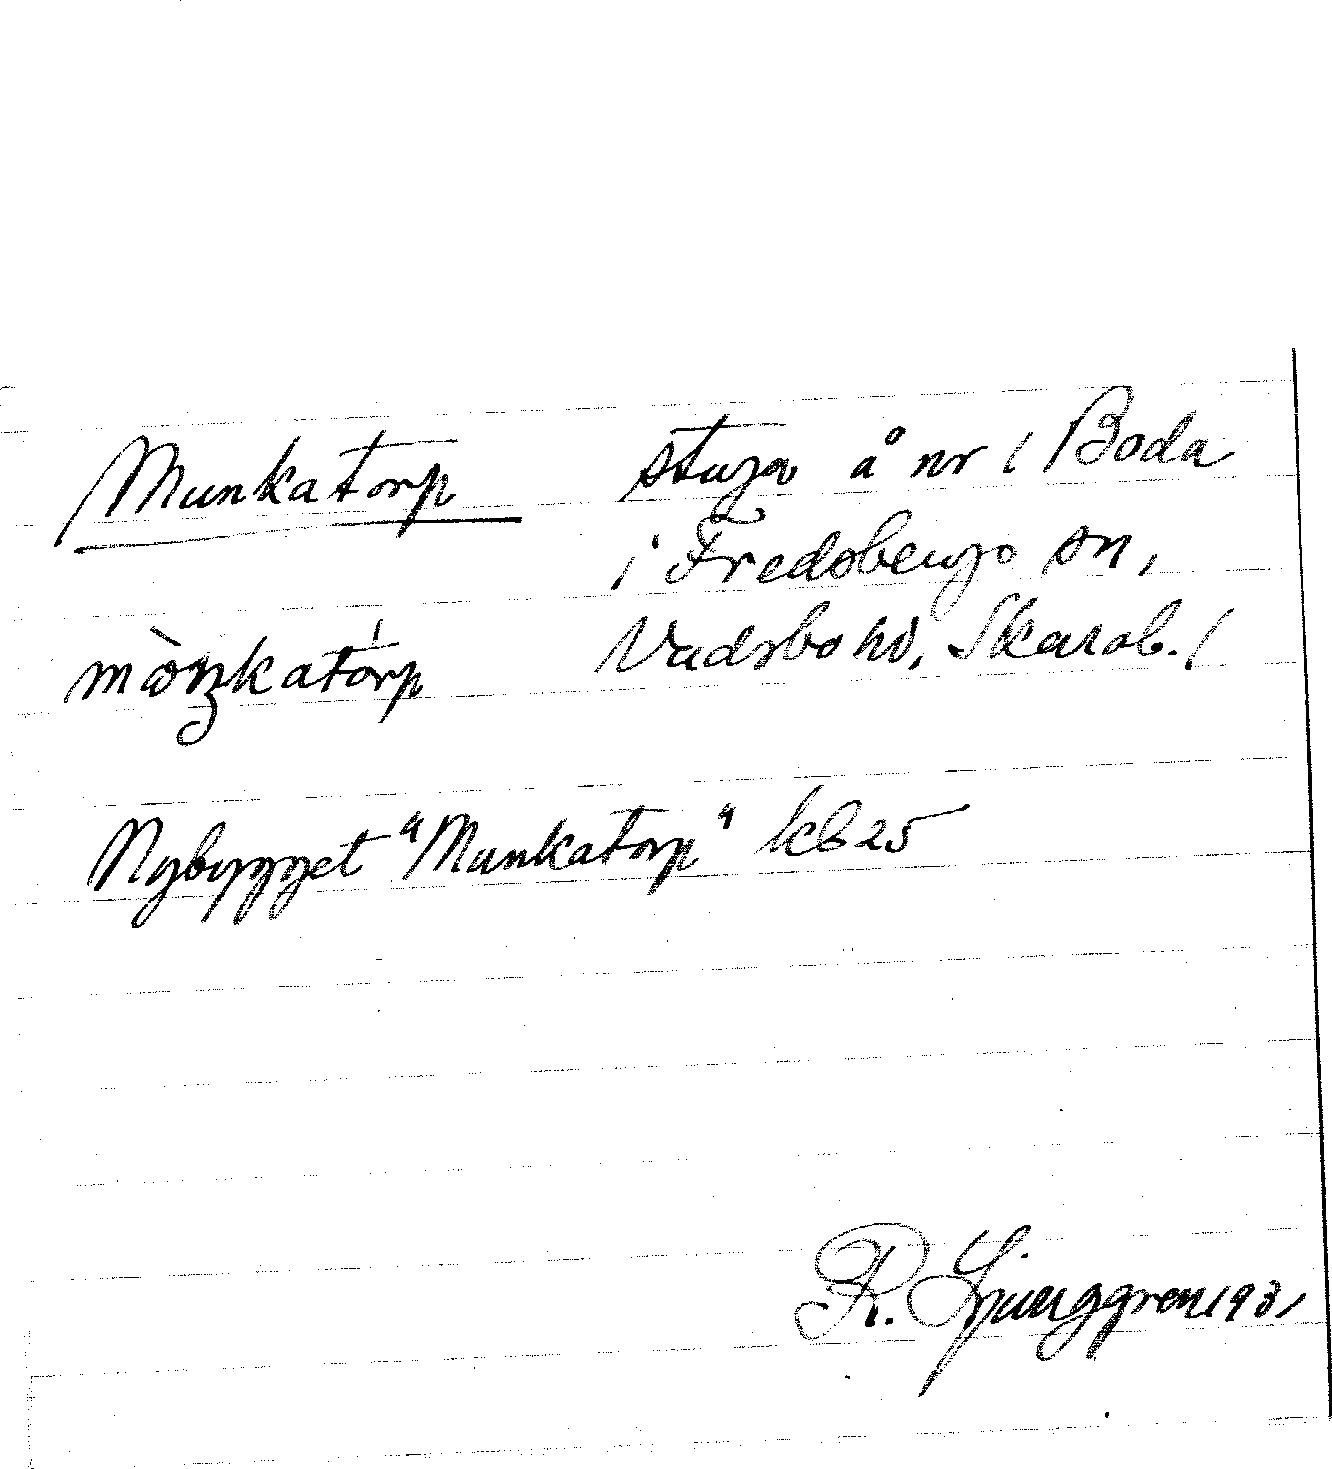 Munkatorp stuga å nr 1 Boda
i Fredsbergs sn,
mòŋkatórp Vadsbo hd, Skarab. l
Nybygget "Munkatorp" kb 25
R. Ljunggren 1931